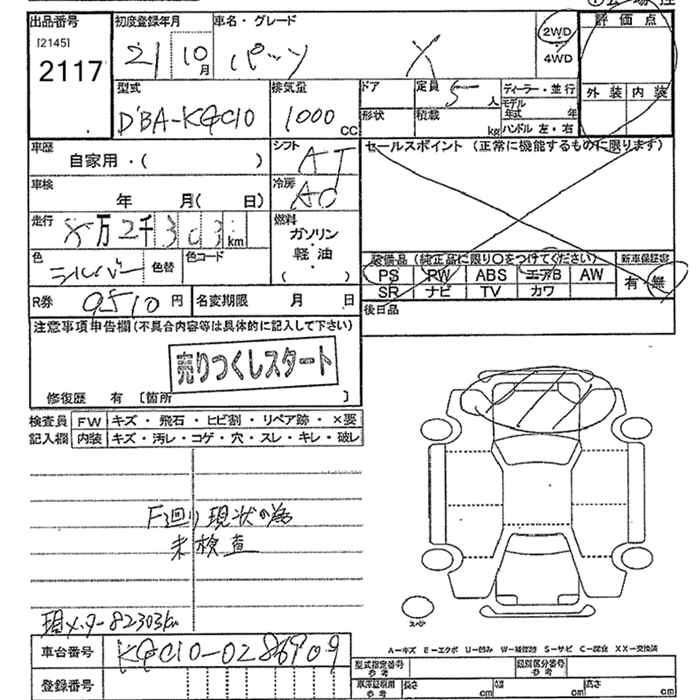 出品番号 初度登録年月 車名・グレード 評価点
[2145]
2117
21 10月 パッソ X
2WD
4WD
型式 排気量 ドア 定員 5人 ディーラー・並行
外装 内装
DBA-KGC10 1000CC
形状 積載 kg
モデル年式 年
ハンドル 左・右
車歴
自家用・( )
シフト AT
セールスポイント(正常に機能するものに限ります)
車検 年 月(日)
冷房 AC
走行 万2千303 km
燃料
ガソリン・軽油・( )
色 シルバー 色替 色コード
装備品(純正品に限り○をつけてください) 新車保証書
PS PW ABS エアB AW
SR ナビ TV カワ
有・無
R券 9510円 名変期限 月 日
後日品
注意事項申告欄(不具合内容等は具体的に記入して下さい)
売りつくしスタート
修復歴 有 [箇所 ]
検査員記入欄
FW キズ・飛石・ヒビ割・リペア跡・×要
内装 キズ・汚レ・コゲ・穴・スレ・キレ・破レ
F廻り現状の為
未検査
現メーター82303km
スペア
A-キズ E-エクボ U-凹み W-補修跡 S-サビ C-腐食 XX-交換済
車台番号 KGC10-0286909
登録番号
型式指定番号 参考
類別区分番号 参考
車庫証明用 参考
長さ cm 幅 cm 高さ cm